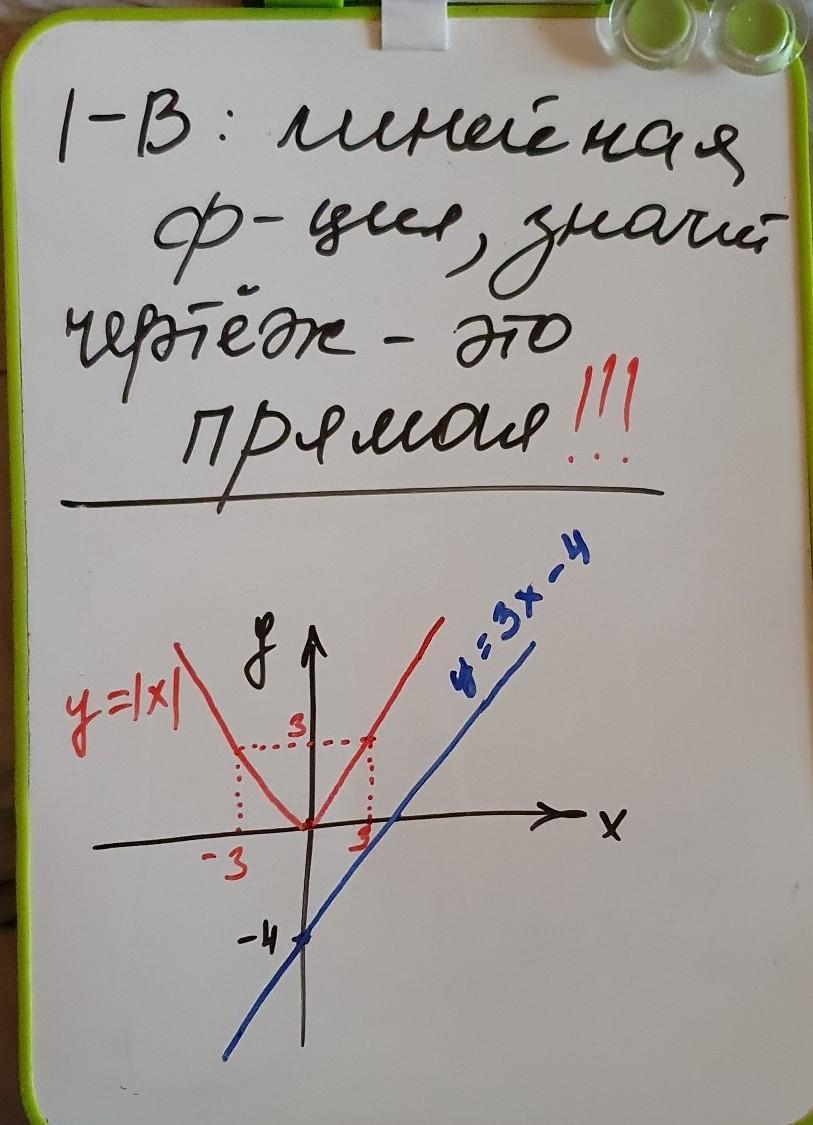 1-В: линейная
ф-ция, значит
чертёж - это
прямая!!!
y = 3x - 4
y
y = |x|
3
x
-3
3
-4